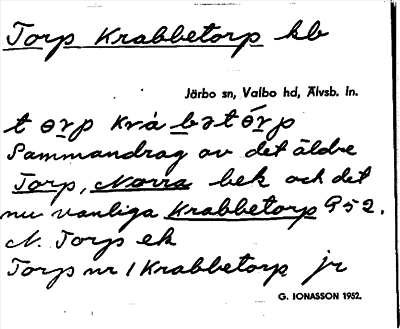 Torp Krabbetorp hb
Järbo sn, Valbo hd, Älvsb. ln.
t ɵrp krábətɵ́rp
Sammandrag av det äldre
Torp, Norra bek och det
nu vanliga Krabbetorp 952.
N. Torp ek
Torp nr 1 Krabbetorp jr
G. IONASSON 1952.